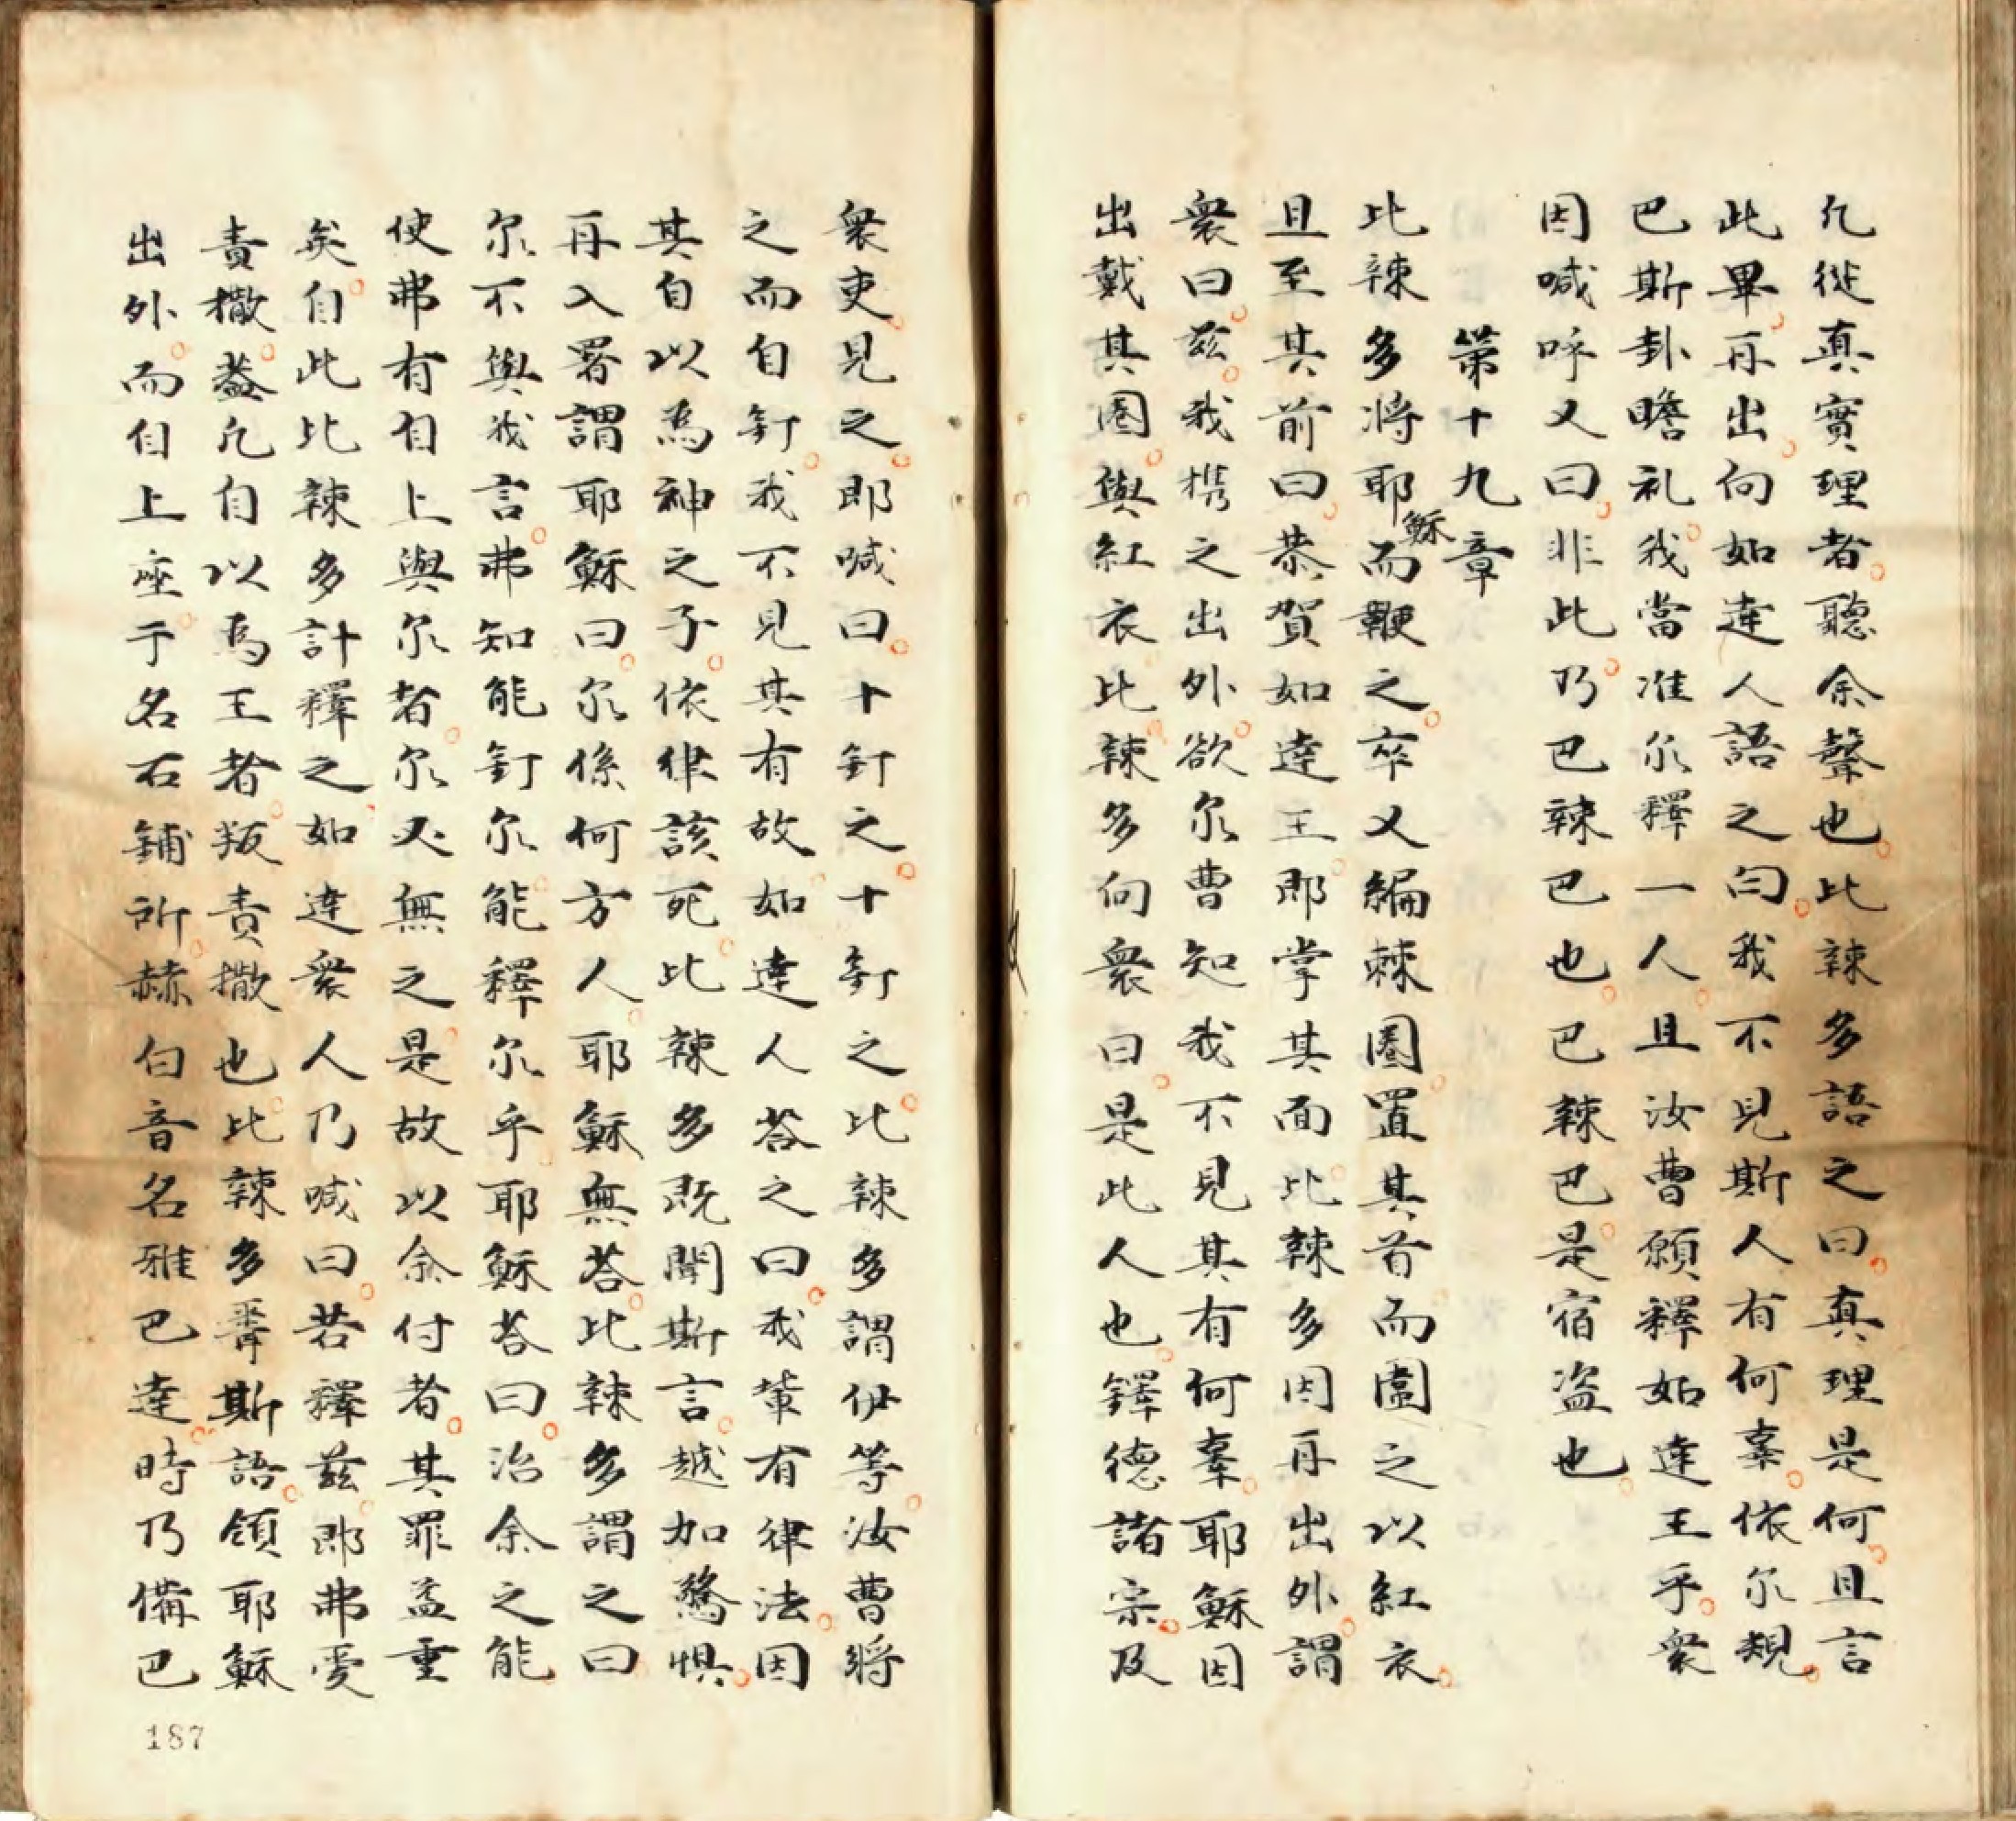 凢從真實理者聽余聲也比辣多語之曰真理是何且言
此畢再出向如達人語之曰我不見斯人有何辜依尔規
巴斯卦瞻礼我當准尔釋一人且汝曹願釋如達王乎衆
因喊呼又曰非此乃巴辣巴也巴辣巴是宿盗也
第十九章
比辣多將耶穌而鞭之卒又編棘圈置其首而圍之以紅衣
且至其前曰恭賀如達王即掌其面比辣多因再出外謂
衆曰兹我携之出外欲尔曹知我不見其有何辜耶穌因
出戴其圈與紅衣比辣多向衆曰是此人也鐸德諸宗及
衆吏見之即喊曰十釘之十釘之比辣多謂伊等汝曹將
之而自釘我不見其有故如達人荅之曰我軰有律法因
其自以為神之子依律該死比辣多既聞斯言越加驚惧
再入署謂耶穌曰尔係何方人耶穌無荅比辣多謂之曰
尔不與我言弗知能釘尔能釋尔乎耶穌荅曰治余之能
使弗有自上與尔者尔必無之是故以余付者其罪孟重
矣自此比辣多計釋之如達衆人乃喊曰若釋兹即弗愛
責撒葢凢自以為王者叛責撒也比辣多聞斯語領耶穌
出外而自上座于名石鋪所赫伯音名雅巴達時乃備巴
187